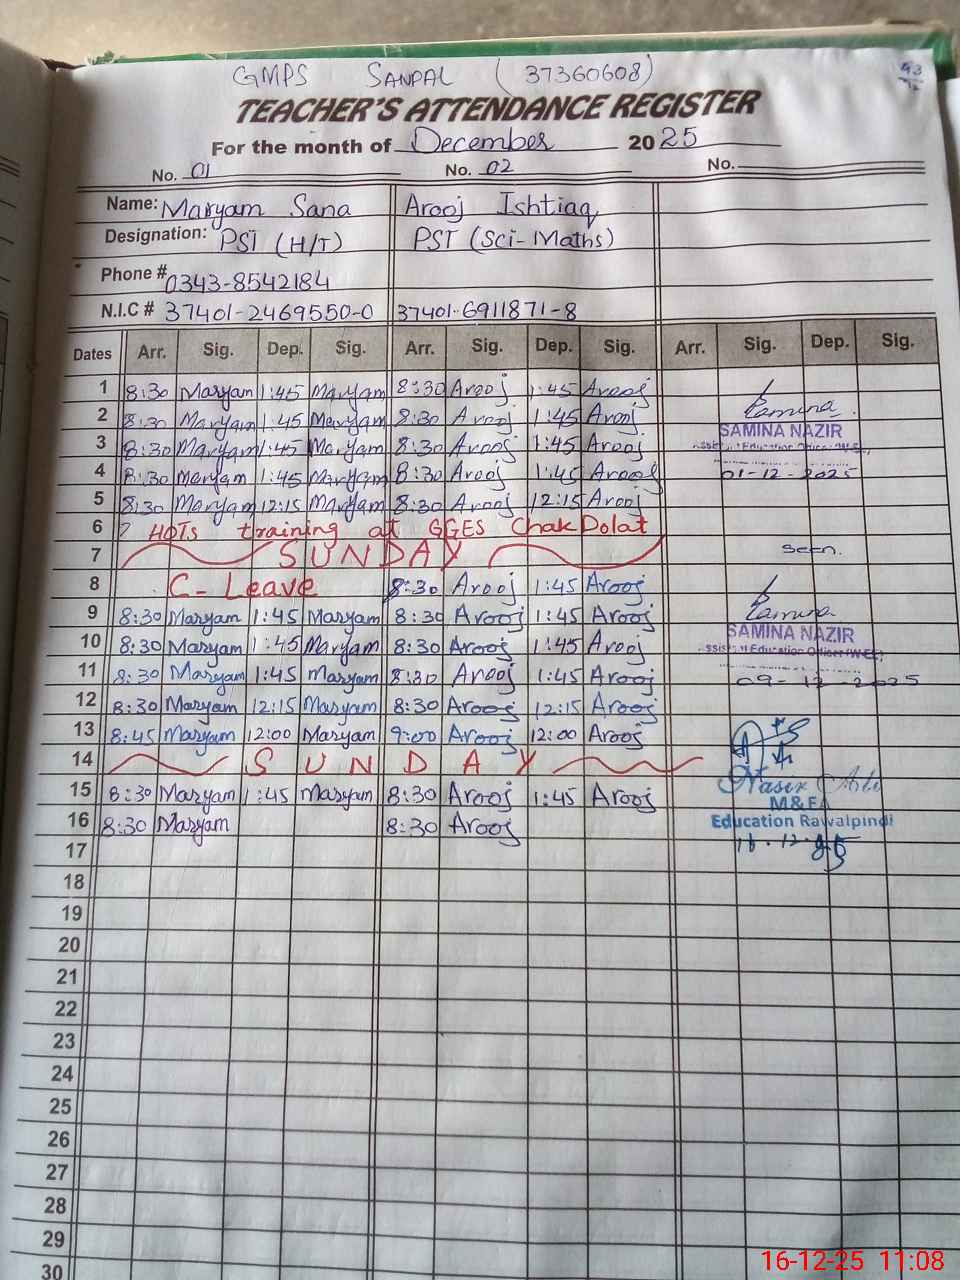 GMPS SANPAL (37360608)
TEACHER'S ATTENDANCE REGISTER
For the month of December 2025
No. 01 No. 02 No.
Name: Maryam Sana Arooj Ishtiaq
Designation: PST (H/T) PST (Sci-Maths)
Phone # 0343-8542184
N.I.C # 37401-2469550-0 37401-6911871-8
Dates Arr. Sig. Dep. Sig. Arr. Sig. Dep. Sig. Arr. Sig. Dep. Sig.
1 8:30 Maryam 1:45 Maryam 8:30 Arooj 1:45 Arooj
2 8:30 Maryam 1:45 Maryam 8:30 Arooj 1:45 Arooj Samina
3 8:30 Maryam 1:45 Maryam 8:30 Arooj 1:45 Arooj SAMINA NAZIR
Education Officer
4 8:30 Maryam 1:45 Maryam 8:30 Arooj 1:45 Arooj 01-12-2025
5 8:30 Maryam 12:15 Maryam 8:30 Arooj 12:15 Arooj
6 HOTs training at GGES Chak Dolat
7 SUNDAY seen.
8 C-Leave 8:30 Arooj 1:45 Arooj
9 8:30 Maryam 1:45 Maryam 8:30 Arooj 1:45 Arooj Samina
SAMINA NAZIR
10 8:30 Maryam 1:45 Maryam 8:30 Arooj 1:45 Arooj Education Officer
11 8:30 Maryam 1:45 Maryam 8:30 Arooj 1:45 Arooj 09-12-2025
12 8:30 Maryam 12:15 Maryam 8:30 Arooj 12:15 Arooj
13 8:45 Maryam 12:00 Maryam 9:00 Arooj 12:00 Arooj
14 SUNDAY
15 8:30 Maryam 1:45 Maryam 8:30 Arooj 1:45 Arooj Nasir Ali
M&EA
16 8:30 Maryam 8:30 Arooj Education Rawalpindi
17 16.12.25
18
19
20
21
22
23
24
25
26
27
28
29
30
16-12-25 11:08